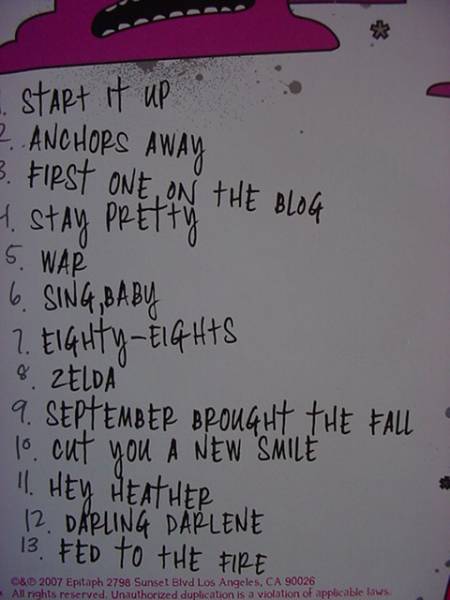 1. START IT UP
2. ANCHORS AWAY
3. FIRST ONE ON THE BLOG
4. STAY PRETTY
5. WAR
6. SING, BABY
7. EIGHTY-EIGHTS
8. ZELDA
9. SEPTEMBER BROUGHT THE FALL
10. CUT YOU A NEW SMILE
11. HEY HEATHER
12. DARLING DARLENE
13. FED TO THE FIRE
©&℗ 2007 Epitaph 2798 Sunset Blvd Los Angeles, CA 90026
All rights reserved. Unauthorized duplication is a violation of applicable laws.